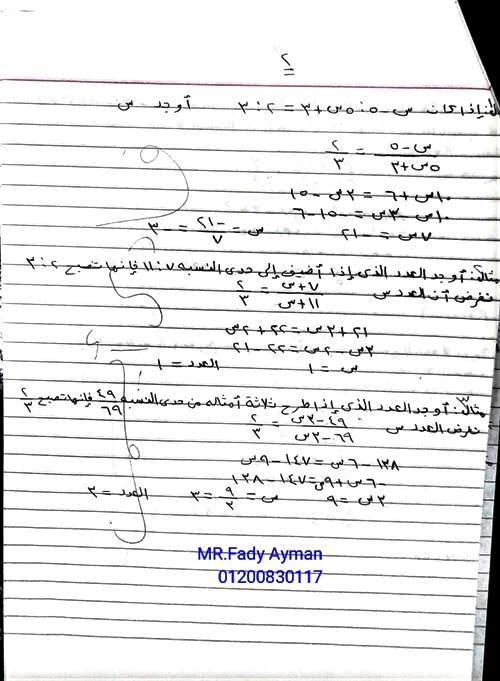 ٢
مثال: إذا كان س-٥ : ٥س+٣ = ٢ : ٣ أوجد س
س-٥ / ٥س+٣ = ٢ / ٣
١٠س+٦ = ٣س-١٥
١٠س-٣س = -١٥-٦
٧س = -٢١ س = -٢١ / ٧ = -٣
مثال: أوجد العدد الذي إذا أضيف إلى حدى النسبه ٧ : ١١ فإنها تصبح ٢ : ٣
نفرض أن العدد س ٧+س / ١١+س = ٢ / ٣
٢١+٣س = ٢٢+٢س
٣س-٢س = ٢٢-٢١
س = ١ العدد = ١
مثال٣: أوجد العدد الذي إذا طرح ثلاثة أمثاله من حدى النسبه ٤٩ / ٦٩ فإنها تصبح ٢ / ٣
نفرض العدد س ٤٩-٣س / ٦٩-٣س = ٢ / ٣
١٣٨-٦س = ١٤٧-٩س
-٦س+٩س = ١٤٧-١٣٨
٣س = ٩ س = ٩ / ٣ = ٣ العدد = ٣
MR.Fady Ayman
01200830117